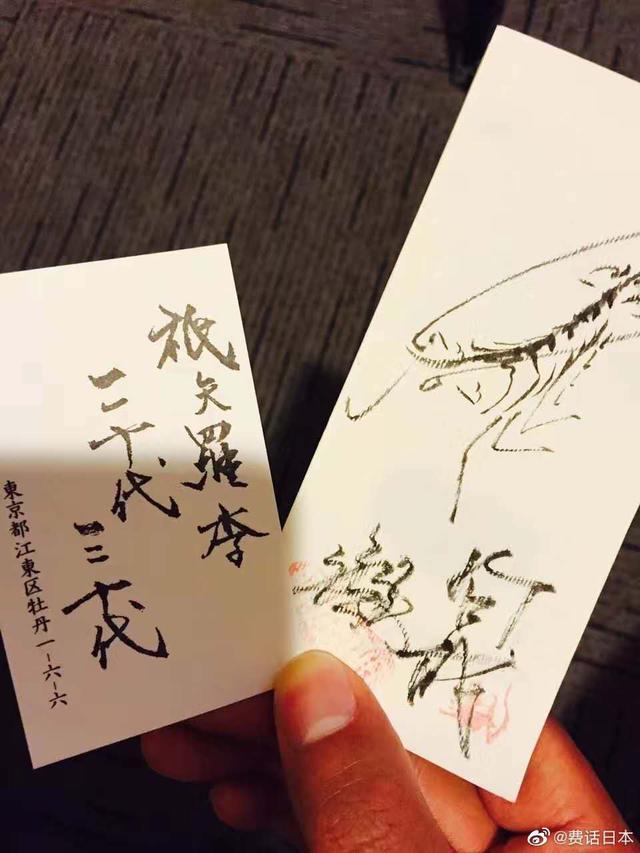 祇矢羅李
二十代
三十代
東京都江東区牡丹一-六-六
@费话日本